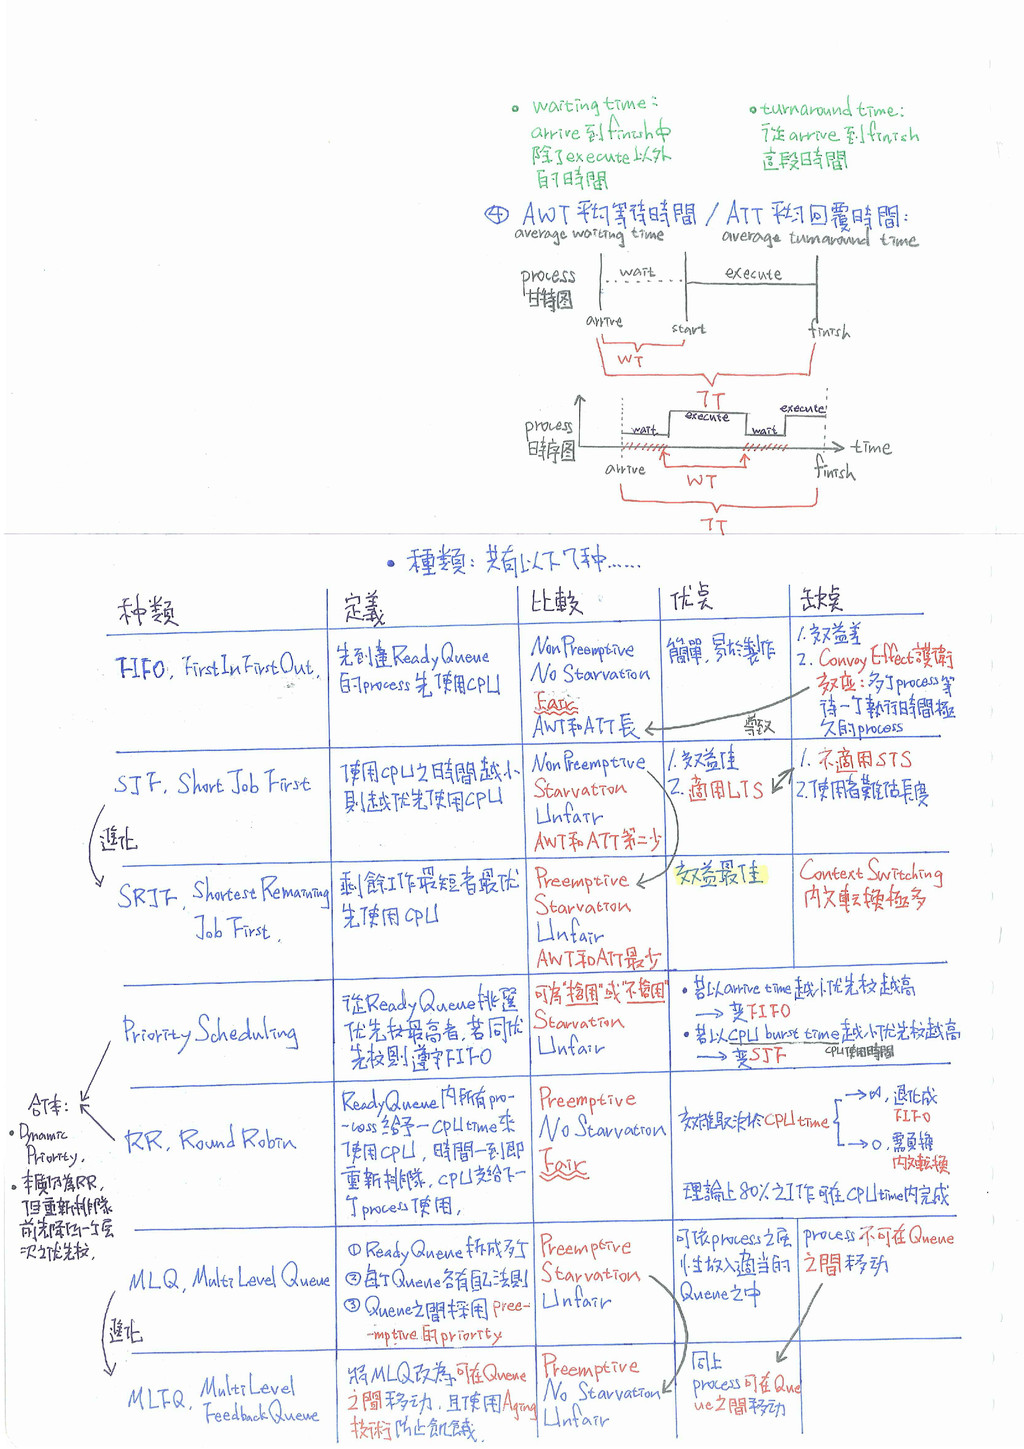 • waiting time:
arrive到finish中
除了execute以外
的時間
• turnaround time:
從arrive到finish
這段時間
④ AWT 平均等待時間 / ATT 平均回覆時間:
average waiting time
average turnaround time
process
甘特图
wait
execute
arrive
start
finish
WT
TT
process
時序图
wait
execute
wait
execute
time
arrive
finish
WT
TT
• 種類: 共有以下7种......
种類
定義
比較
优点
缺点
FIFO, First In First Out.
先到達Ready Queue
的process先使用CPU
Non Preemptive
No Starvation
Fair
AWT和ATT長
簡單,易於製作
1. 效益差
2. Convoy Effect護衛
效应:多个process等
待一个執行時間極
久的process
導致
SJF, Short Job First
使用CPU之時間越小
則越优先使用CPU
Non Preemptive
Starvation
Unfair
AWT和ATT第二少
1. 效益佳
2. 適用LTS
1. 不適用STS
2. 使用者難估長度
進化
SRJF, Shortest Remaining
Job First.
剩餘工作最短者最优
先使用CPU
Preemptive
Starvation
Unfair
AWT和ATT最少
效益最佳
Context Switching
内文転換極多
Priority Scheduling
從Ready Queue挑選
优先权最高者,若同优
先权則遵守FIFO
可為"搶困"或"不搶困"
Starvation
Unfair
• 若以arrive time越小优先权越高
→ 変FIFO
• 若以CPU burst time越小优先权越高
→ 変SJF
CPU使用時間
合体:
• Dynamic
Priority.
• 本質仍為RR,
但重新排隊
前先降低一个层
次之优先权.
RR, Round Robin
Ready Queue内所有pro-
-cess給予一CPU time來
使用CPU,時間一到即
重新排隊,CPU交給下一
个process使用.
Preemptive
No Starvation
Fair
效能取決於CPU time
→ ∞, 退化成
FIFO
→ 0, 需負擔
内文転換
理論上80%之工作可在CPU time内完成
MLQ, Multi Level Queue
① Ready Queue 拆成多个
② 每个Queue各有自己法則
③ Queue之間採用pree-
-mptive的priority
Preemptive
Starvation
Unfair
可依process之屬
性放入適当的
Queue之中
process不可在Queue
之間移动
進化
MLFQ, Multi Level
Feedback Queue
將MLQ改為可在Queue
之間移动,且使用Aging
技術防止飢餓.
Preemptive
No Starvation
Unfair
同上
process可在Que
ue之間移动